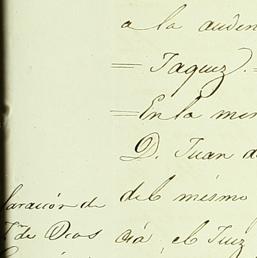 a la auden
= Taquez. =
= En la mem
D. Juan de
laración de
del mismo
de Dios
cia, el Juez